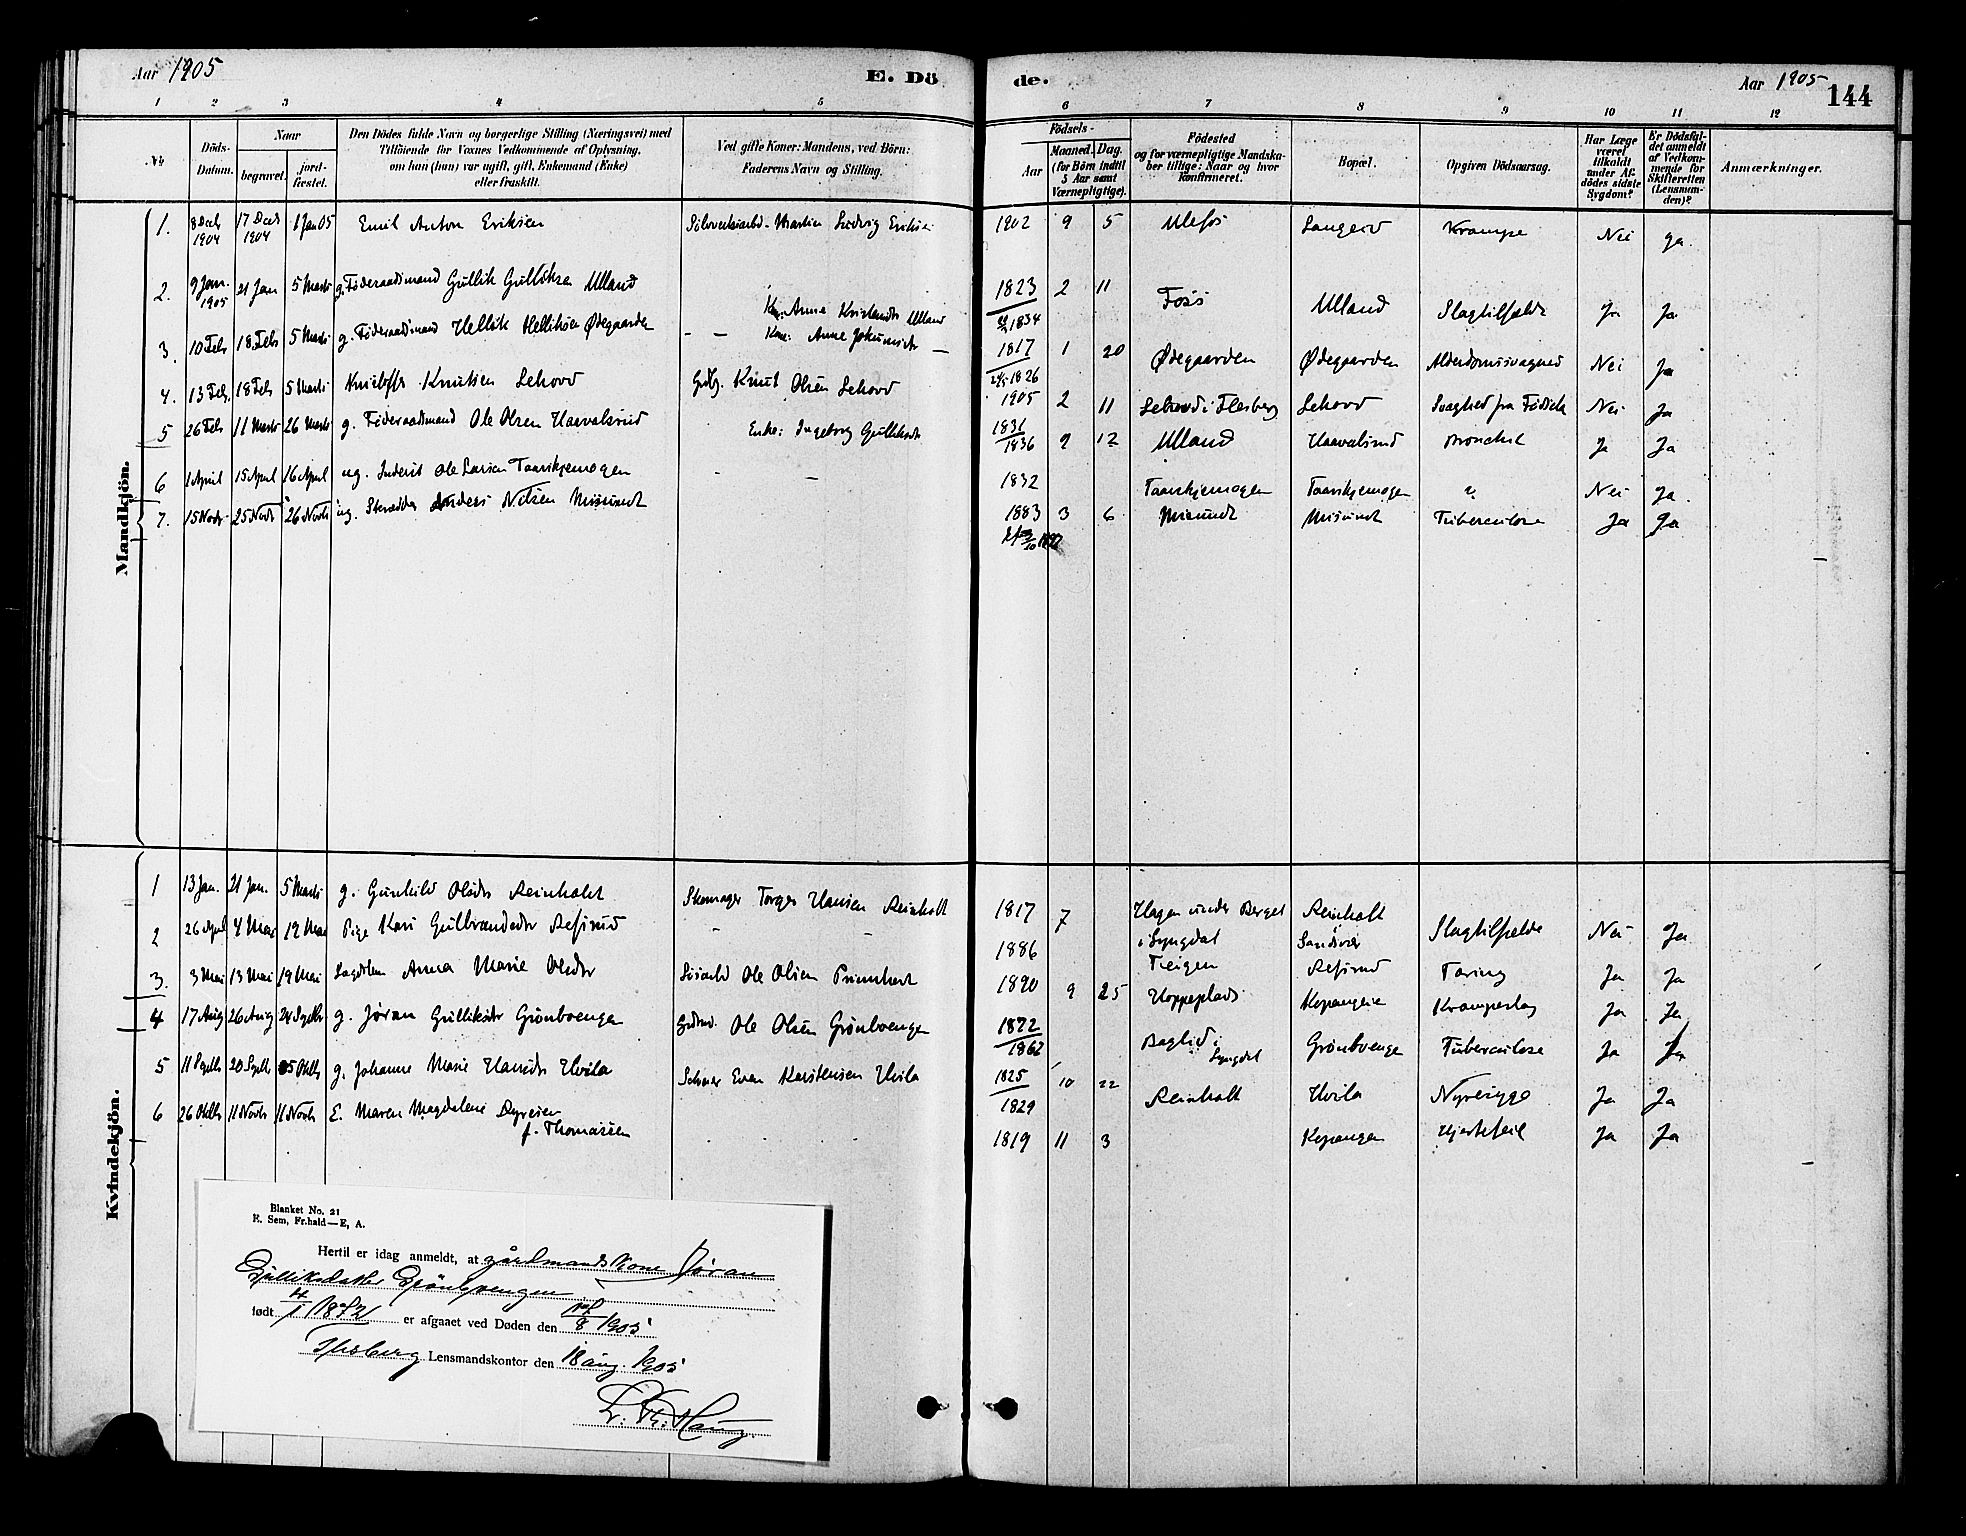 Aar 1905 E. Dö
de. Aar 1905 144
1 2 3 4 5
6 7 8 9 10 11 12
No.
Döds-Datum.
Naar
begravet.
jordfæstet.
Den Dödes fulde Navn og borgerlige Stilling (Næringsvei) med
Tilföiende for Voxnes Vedkommende af Oplysning,
om han (hun) var ugift, gift, Enkemand (Enke)
eller fraskilt.
Ved gifte Koner: Mandens, ved Börn:
Faderens Navn og Stilling.
Födsels-
Aar
Maaned. Dag.
(for Börn indtil
5 Aar samt
Værnepligtige).
Födested
og for værnepligtige Mandska-
ber tillige: Naar og hvor
konfirmeret.
Bopæl.
Opgiven Dödsaarsag.
Har Læge
været
tilkaldt
under Af-
dödes sidste
Sygdom?
Er Dödsfal-
det anmeldt
af Vedkom-
mende for
Skifteretten
(Lensman-
den)?
Anmærkninger.
Mandkjön.
1. 8 Decb 1904 17 Decb 1904 1 Jan 05 Emil Anton Eriksen Martin Ludvig Eriksen 1902 9 5 Ulefos Langerud Krampe Nei Ja
2. 9 Jan. 1905 21 Jan 5 Marts g. Föderaadsmand Gullik Gulliksen Ulland Kone: Anne Ulland 1823 2 11 1834 Foss Ulland Slagtilfælde Ja Ja
3. 10 Feb 18 Feb 5 Marts g. Föderaadsmand Hellik Helliksen Ødegaarden - - Kone: Anne - 1817 1 20 1826 Ødegaarden Ødegaarden Alderdomssvaghed Nei Ja
4. 13 Feb. 18 Feb 5 Marts Knutsen Lehovd Knut Olsen Lehovd 1905 2 11 Lehovd i Flesberg Lehovd Svaghed fra Födsel Nei Ja
5 26 Feb 11 Marts 26 Marts g. Föderaadsmand Ole Olsen Haavalsrud Enke: Ingeborg Gulliksdr 1831 1836 9 12 Ulland Haavalsrud Bronchit Ja Ja
6 1 April 15 April 16 April ug. Inderst Ole Larsen Taanskjemogen - - 1832 Taanskjemogen Taanskjemogen ? Nei Ja
7. 15 Novb 25 Novb 26 Novb ug. Skrædder Anders Nilsen Misundt 1883 3 6 Misundt Misundt Tuberculose Ja Ja
Kvindekjön.
1 13 Jan. 21 Jan. 5 Marts g. Gunhild Olsdr Reinholt Skomager Torger Hansen Reinholt 1817 7 Hagen under Berget i Lyngdal Reinholt Sandsvær Slagtilfælde Nei Ja
2 26 April 4 Mai 19 Mai Pige Kari Gulbrandsdr Refsrud - - 1886 Teigen Refsrud Tæring Ja Ja
3. 3 Mai 13 Mai 19 Mai Anna Marie Olsdr Ole Olsen 1890 9 25 Hoppeplads Kopangen Krampeslag Ja Ja
4 17 Aug 26 Aug 24 Septb g. Jøran Gulliksdr Grönbvengen Ole Olsen Grönbvengen 1872 1862 Baglid i Lyngdal Grönbvengen Tuberculose Ja Ja
5 11 Septb 20 Septb 15 Oktb g. Johanne Marie Hansdr Hvila Even Karstensen Hvila 1825 1829 10 22 Reinholt Hvila Ja Ja
6 26 Oktb 11 Novb 11 Novb E. Maren Magdalene Dyresen
f. Thomassen 1819 11 3 Kopangen Hjertefeil Ja Ja
Blanket No. 21
R. Sem, Fr.hald—E, A.
Hertil er idag anmeldt, at gårdmandskone Jöran
Gulliksdatter Grönbvengen
født 4/1 1872 er afgaaet ved Døden den 17/8 1905
Flesberg Lensmandskontor den 18 aug. 1905